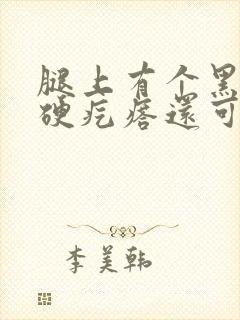 腿上有个黑
硬疙瘩还可
李美韩